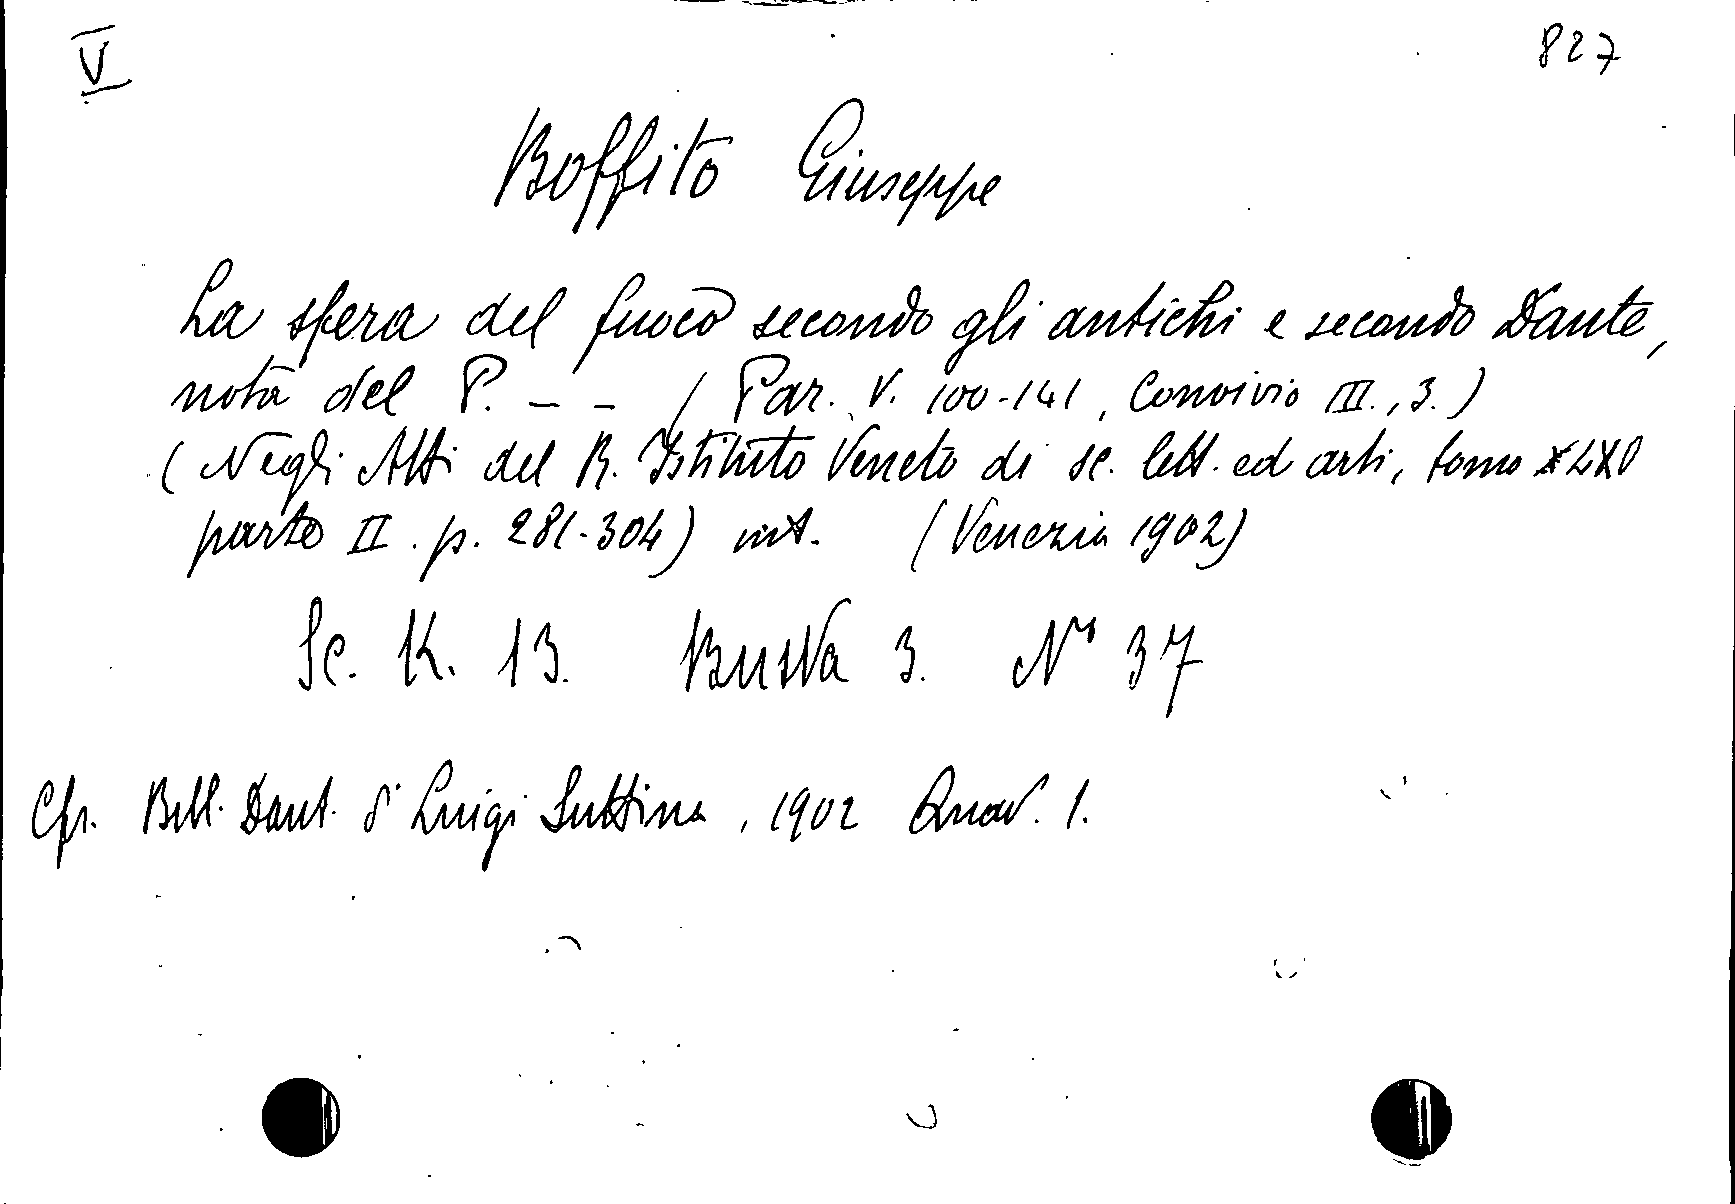 V 827
Boffito Giuseppe
La sfera del fuoco secondo gli antichi e secondo Dante,
nota del P. - - (Par. V. 100-141, Convivio III., 3.)
(Negli Atti del R. Istituto Veneto di sc. lett. ed arti, tomo LXI
parte II. p. 281-304) int. (Venezia 1902)
Sc. K. 13. Busta 3. N° 37
Cfr. Bull. Dant. di Luigi Suttina, 1902 Quad. 1.